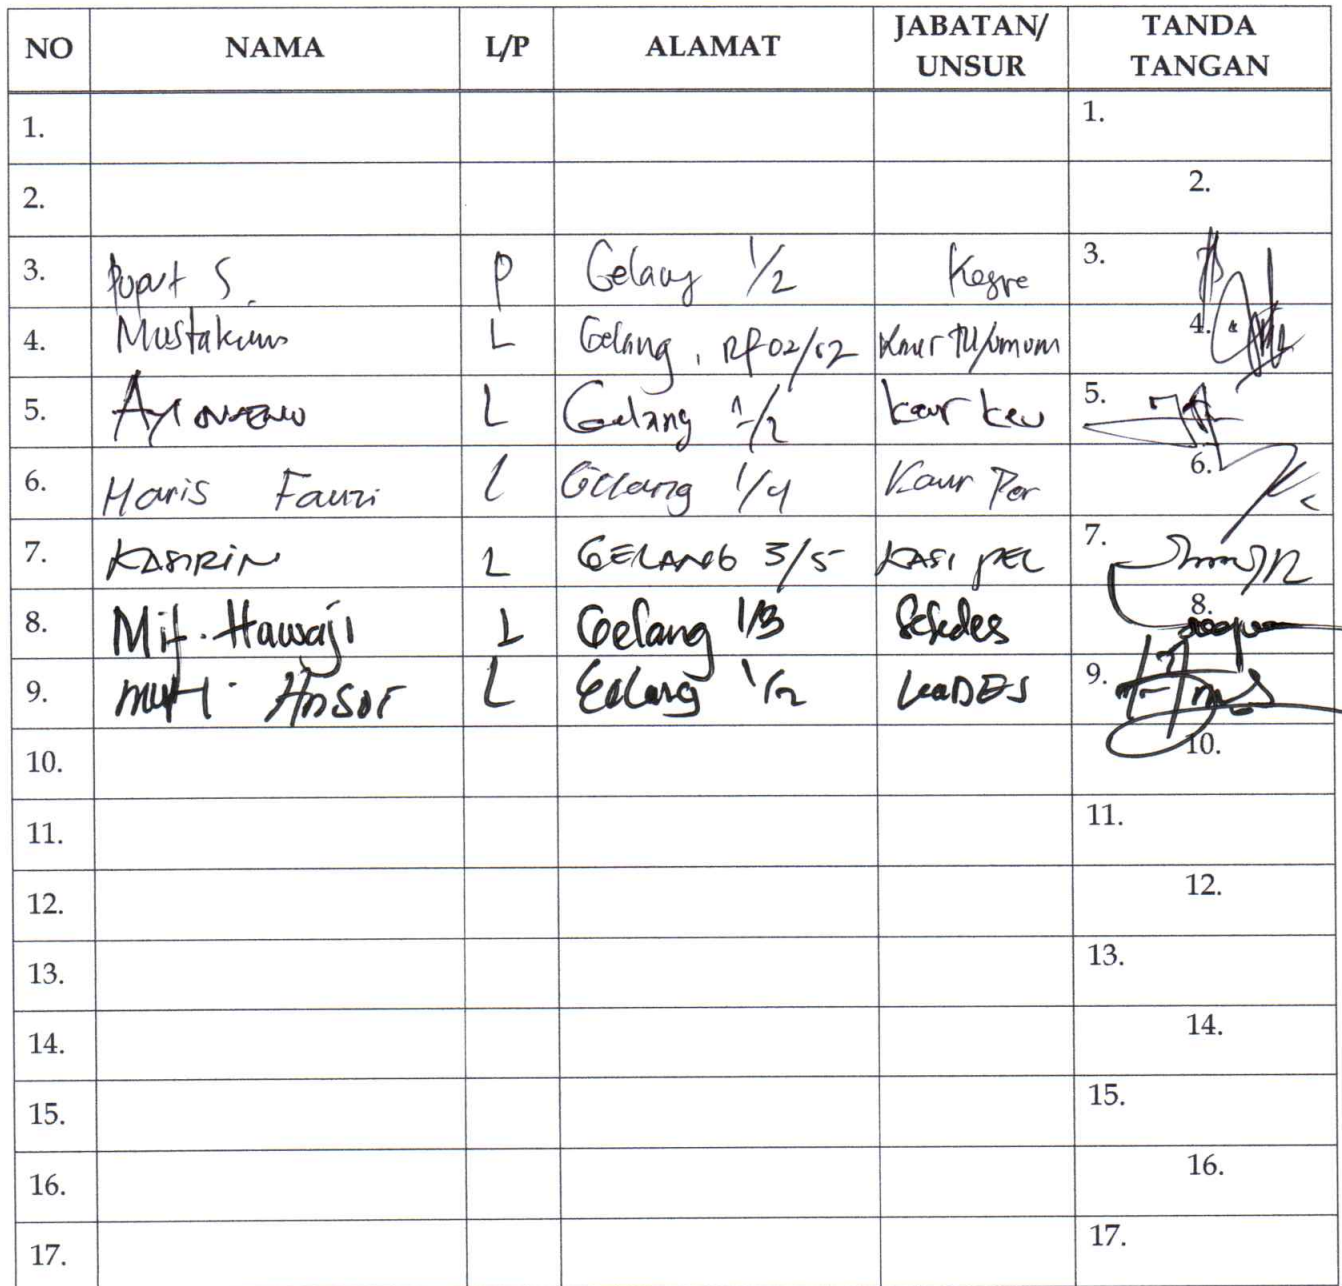 NO NAMA L/P ALAMAT JABATAN/ UNSUR TANDA TANGAN
1. 1.
2. 2.
3. Puput S. P Gelang 1/2 Kesra 3.
4. Mustakim L Gelang, RT 02/02 Kaur TU/umum 4.
5. L Gelang 1/2 Kaur keu 5.
6. Haris Fauzi L Gelang 1/4 Kaur Per 6.
7. KASIRIN L GELANG 3/5 KASI PEL 7.
8. Mif. Hawaji L Gelang 1/3 Sekdes 8.
9. Ansor L Gelang 1/2 KADES 9.
10. 10.
11. 11.
12. 12.
13. 13.
14. 14.
15. 15.
16. 16.
17. 17.